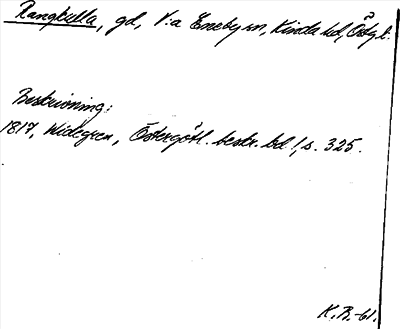 Rangkulla, gd, V:a Eneby sn, Kinda hd, Östgl.
Beskrivning:
1817, Widegren, Östergötl. beskr. bd 1, s. 325.
K.B.-61.